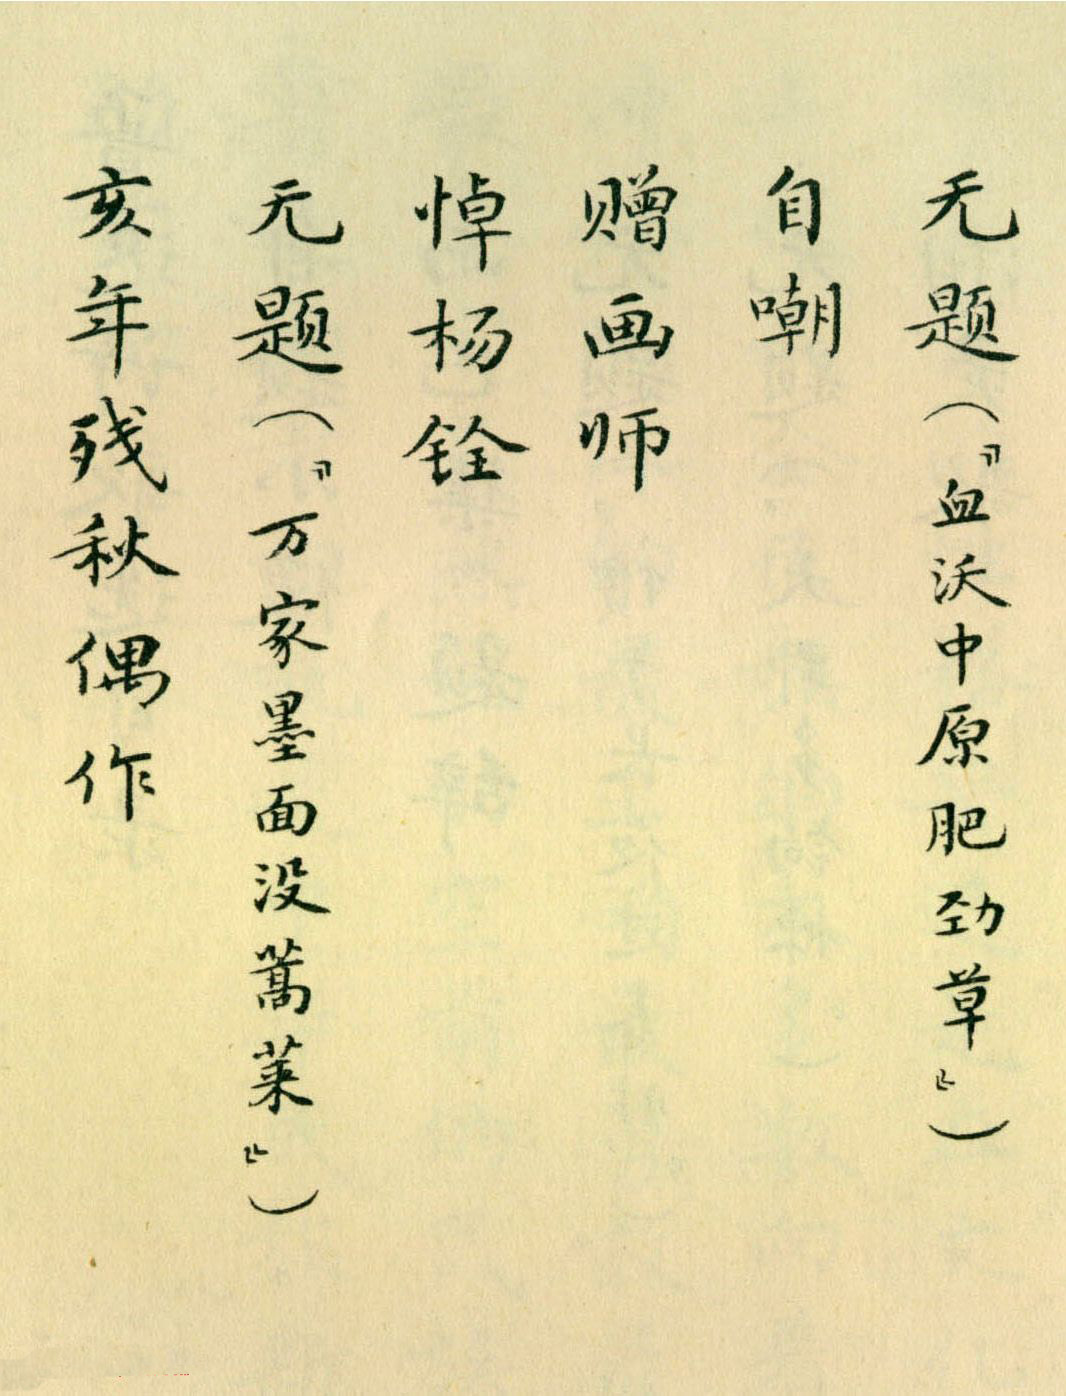 无题(『血沃中原肥劲草』)
自嘲
赠画师
悼杨铨
无题(『万家墨面没蒿莱』)
亥年残秋偶作